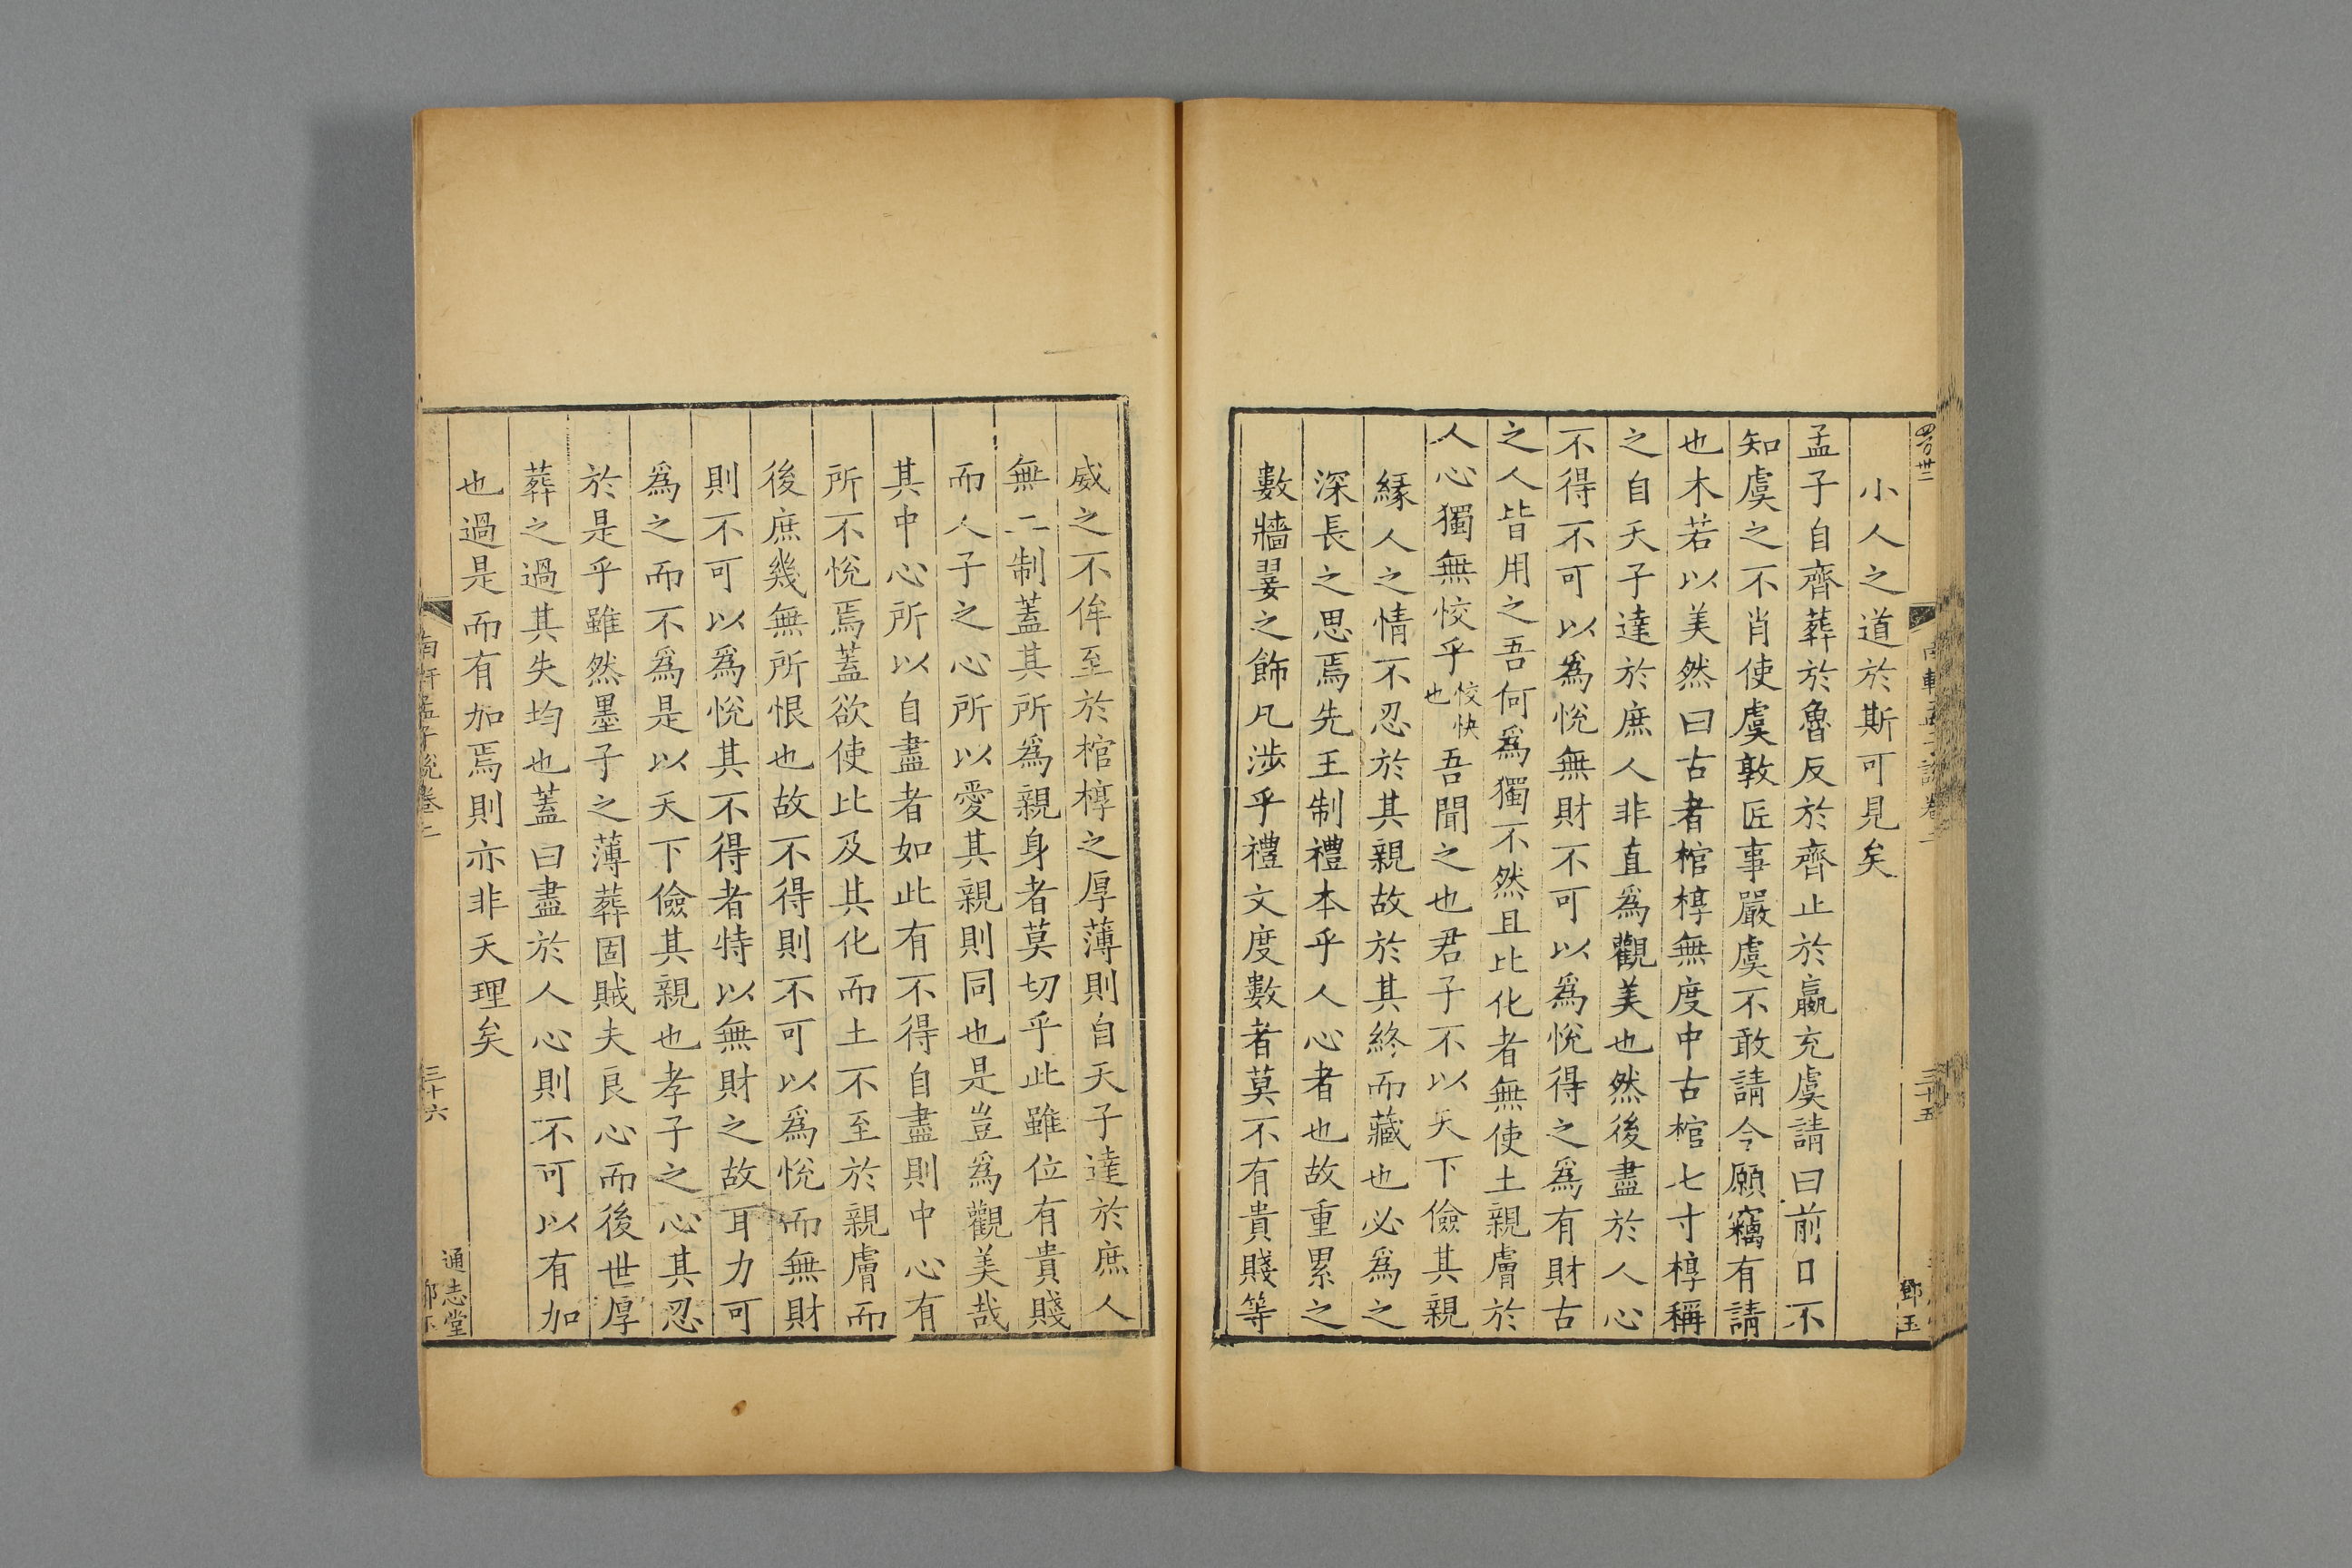 小人之道於斯可見矣
孟子自齊葬於魯反於齊止於嬴充虞請曰前日不
知虞之不肖使虞敦匠事嚴虞不敢請今願竊有請
也木若以美然曰古者棺椁無度中古棺七寸椁稱
之自天子達於庶人非直爲觀美也然後盡於人心
不得不可以爲悅無財不可以爲悅得之爲有財古
之人皆用之吾何爲獨不然且比化者無使土親膚於
人心獨無恔乎恔快也吾聞之也君子不以天下儉其親
緣人之情不忍於其親故於其終而藏也必爲之
深長之思焉先王制禮本乎人心者也故重累之
數牆翣之飾凡涉乎禮文度數者莫不有貴賤等
威之不侔至於棺椁之厚薄則自天子達於庶人
無二制蓋其所爲親身者莫切乎此雖位有貴賤
而人子之心所以愛其親則同也是豈爲觀美哉
其中心所以自盡者如此有不得自盡則中心有
所不悅焉蓋欲使比及其化而土不至於親膚而
後庶幾無所恨也故不得則不可以爲悅而無財
則不可以爲悅其不得者特以無財之故耳力可
爲之而不爲是以天下儉其親也孝子之心其忍
於是乎雖然墨子之薄葬固賊夫良心而後世厚
葬之過其失均也蓋曰盡於人心則不可以有加
也過是而有加焉則亦非天理矣
南軒孟子說卷二
三十六
通志堂
三十五
鄧玉